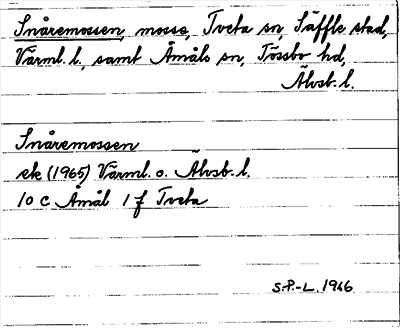 Snåremossen, mosse, Tveta sn, Säffle stad,
Värml. l., samt Åmåls sn, Tössbo hd,
Älvsb. l.
Snåremossen
ek (1965) Värml. o. Älvsb. l.
10 C Åmål 1 f Tveta
S.P.-L. 1966